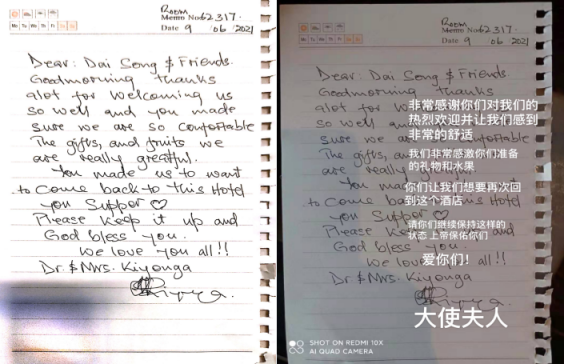 Room
Memo No 62317.
Mo Tu We Th Fr Sa Su
Date 9 / 06 / 2021
Dear: Dai Song & Friends
Goodmorning thanks
alot for welcoming us
so well and you made
sure we are so comfortable
The gifts, and fruits we
are really greatful.
You made us to want
to Come back to this Hotel
you Support ♡
Please keep it up and
God bless you.
We love you all!!
Dr. & Mrs. Kiyonga
Room
Memo No 62317.
Mo Tu We Th Fr Sa Su
Date 9 06 2021
Dear: Dai Song & Friends
Goodmorning thanks
alot for
so well and
sure we are
The gifts,
are really
You ma
to Come back
you Support
Please Keep
God bless you.
We love you all!!
Dr. & Mrs. Kiyonga
非常感谢你们对我们的
热烈欢迎并让我们感到
非常的舒适
我们非常感激你们准备
的礼物和水果
你们让我们想要再次回
到这个酒店
请你们继续保持这样的
状态 上帝保佑你们
爱你们！
大使夫人
SHOT ON REDMI 10X
AI QUAD CAMERA